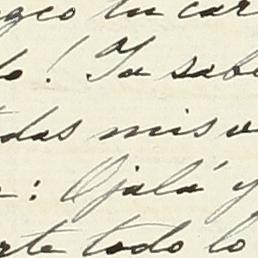 tu car
! Ya sabe
das mis
: Ojalá y
rte todo lo